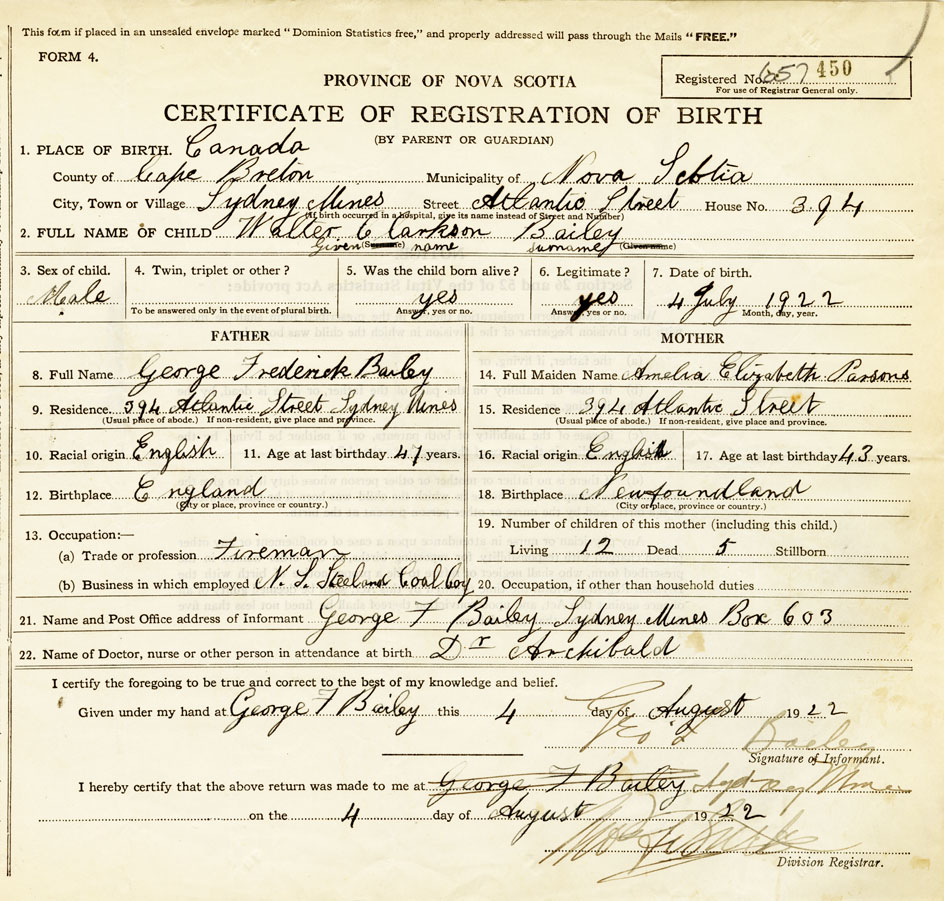 This form if placed in an unsealed envelope marked "Dominion Statistics free," and properly addressed will pass through the Mails "FREE."
FORM 4.
PROVINCE OF NOVA SCOTIA
Registered No. 657 450
For use of Registrar General only.
CERTIFICATE OF REGISTRATION OF BIRTH
(BY PARENT OR GUARDIAN)
1. PLACE OF BIRTH. Canada
County of Cape Breton Municipality of Nova Scotia
City, Town or Village Sydney Mines Street Atlantic Street House No. 394
(If birth occurred in a hospital, give its name instead of Street and Number)
2. FULL NAME OF CHILD Walter Clarkson Bailey
Given (Surname) name surname (Given name)
3. Sex of child. 4. Twin, triplet or other? 5. Was the child born alive? 6. Legitimate? 7. Date of birth.
Male yes yes 4 July 1922
To be answered only in the event of plural birth. Answer, yes or no. Answer, yes or no. Month, day, year.
FATHER MOTHER
8. Full Name George Frederick Bailey 14. Full Maiden Name Amelia Elizabeth Parsons
9. Residence. 394 Atlantic Street Sydney Mines 15. Residence 394 Atlantic Street
(Usual place of abode.) If non-resident, give place and province. (Usual place of abode.) If non-resident, give place and province.
10. Racial origin English 11. Age at last birthday 47 years. 16. Racial origin English 17. Age at last birthday 43 years.
12. Birthplace England 18. Birthplace Newfoundland
(City or place, province or country.) (City or place, province or country.)
13. Occupation:— 19. Number of children of this mother (including this child.)
(a) Trade or profession Fireman Living 12 Dead 5 Stillborn
(b) Business in which employed N. S. Steel and Coal Coy 20. Occupation, if other than household duties
21. Name and Post Office address of Informant George F Bailey Sydney Mines Box 603
22. Name of Doctor, nurse or other person in attendance at birth Dr Archibald
I certify the foregoing to be true and correct to the best of my knowledge and belief.
Given under my hand at George F Bailey this 4 day of August 1922
Geo F Bailey
Signature of Informant.
I hereby certify that the above return was made to me at George F Bailey Sydney Mines
on the 4 day of August 1922
Division Registrar.